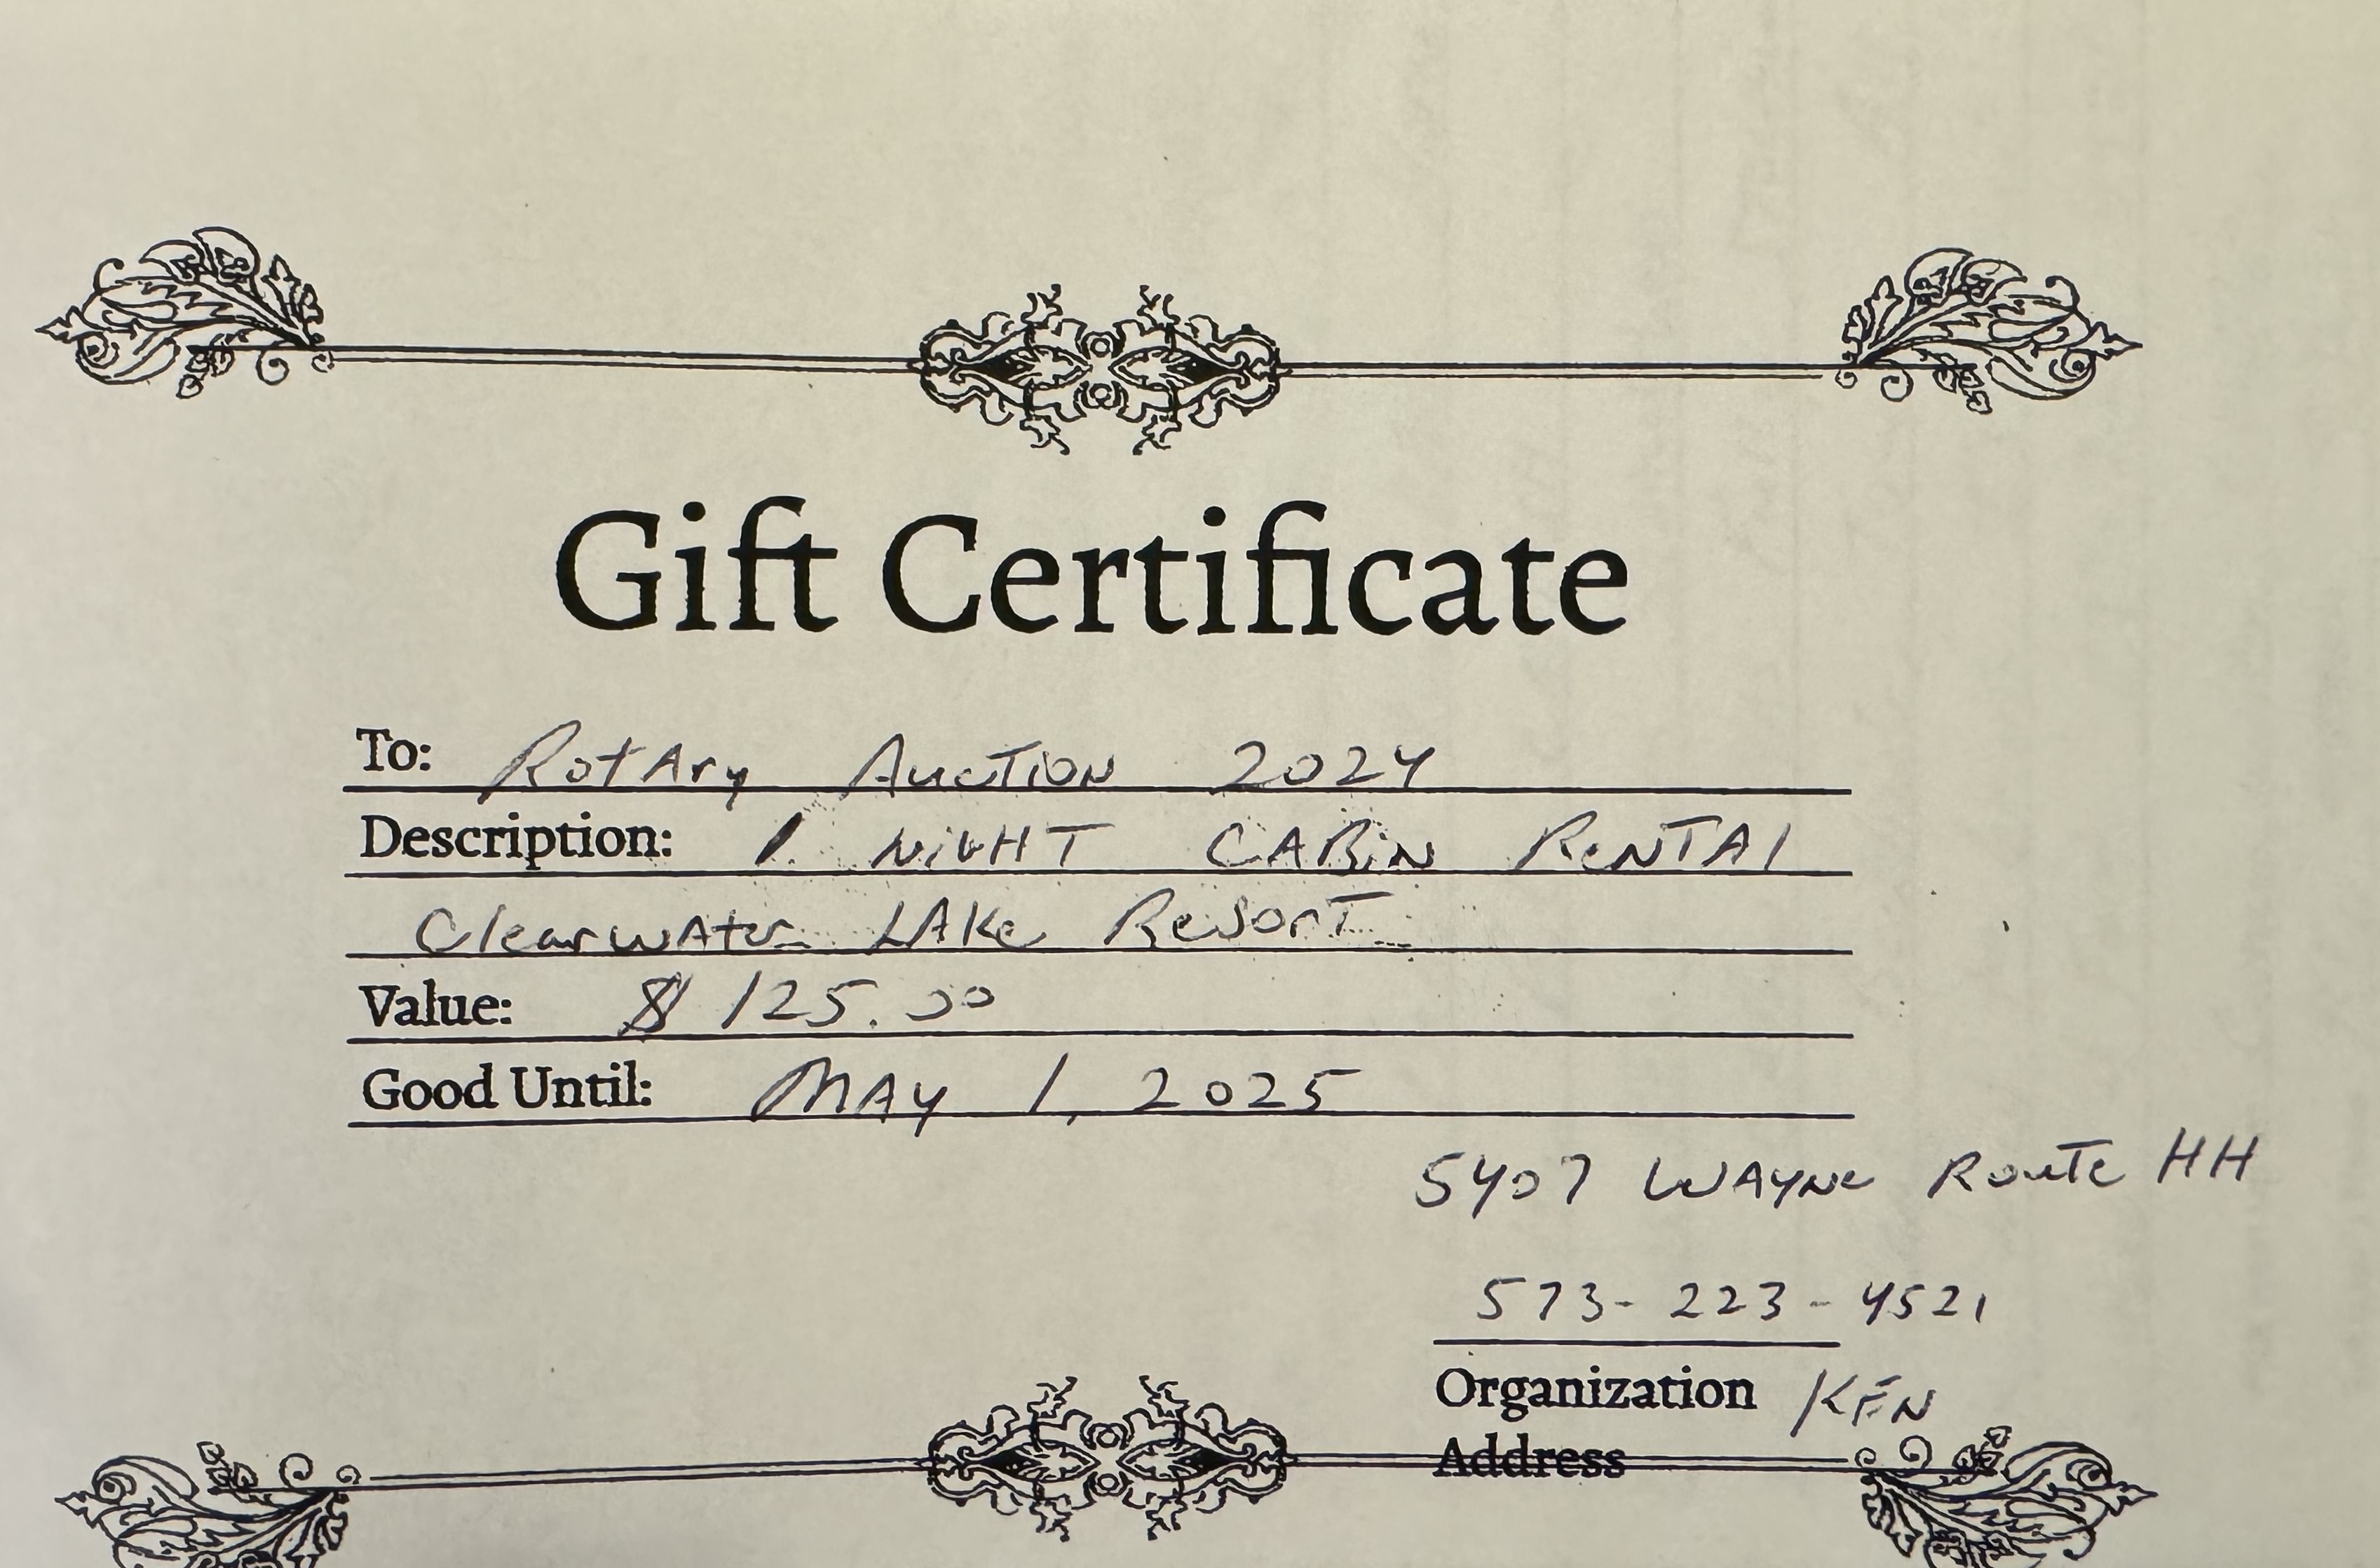 Gift Certificate
To: Rotary Auction 2024
Description: 1 NiGHT CABiN ReNTAl
Clearwater LAKe ResorT
Value: $ 125.00
Good Until: MAY 1, 2025
5407 WAYNe RouTe HH
573-223-4521
Organization KEN
Address